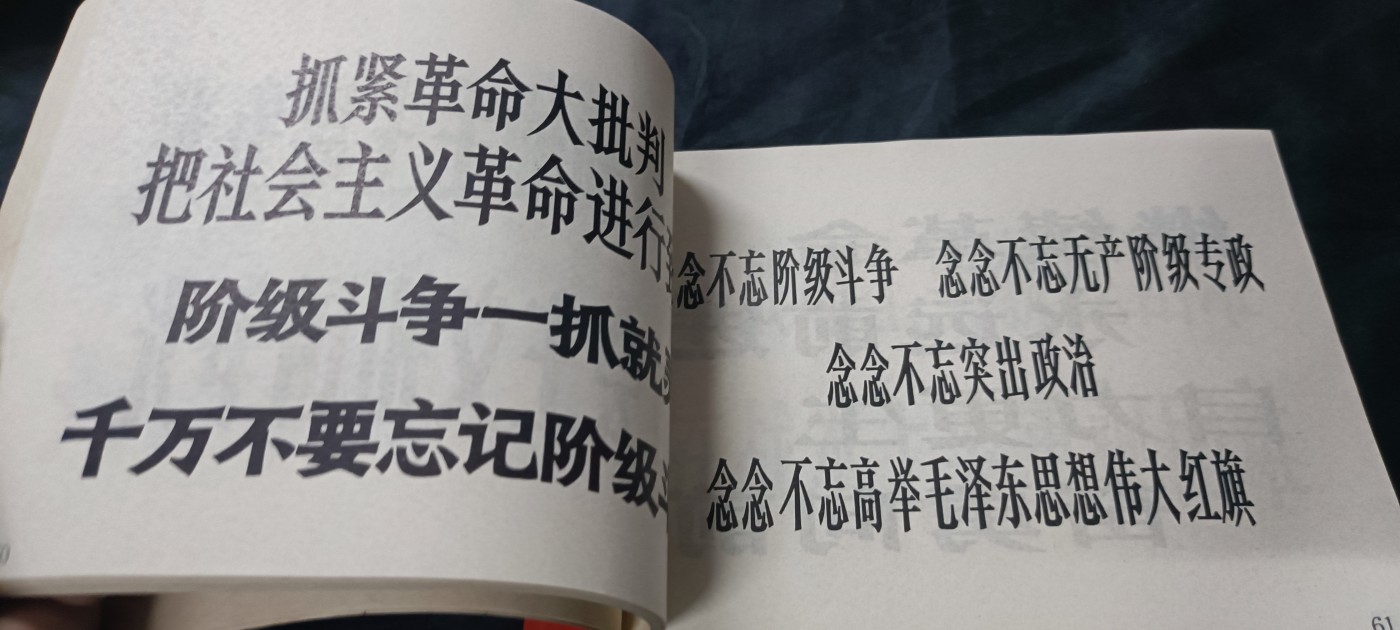 抓紧革命大批判
把社会主义革命进行
阶级斗争一抓就
千万不要忘记阶级
念不忘阶级斗争 念念不忘无产阶级专政
念念不忘突出政治
念念不忘高举毛泽东思想伟大红旗
61